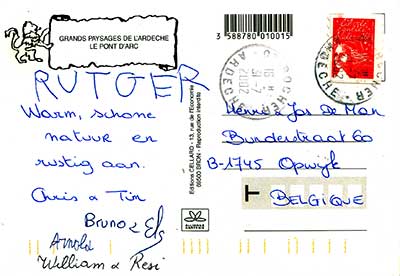 GRANDS PAYSAGES DE L'ARDECHE
LE PONT D'ARC
3 588780 010015
RUTGER
Warm, schone
natuur en
rustig aan.
Chris & Tim
Bruno & Els
Arnold
William & Resi
Editions CELLARD - 13, rue de l'Economie
69500 BRON - Reproduction interdite
ARDECHE
Henna & Jos De Man
Bunderstraat 60
B-1745 Opwijk
BELGIQUE